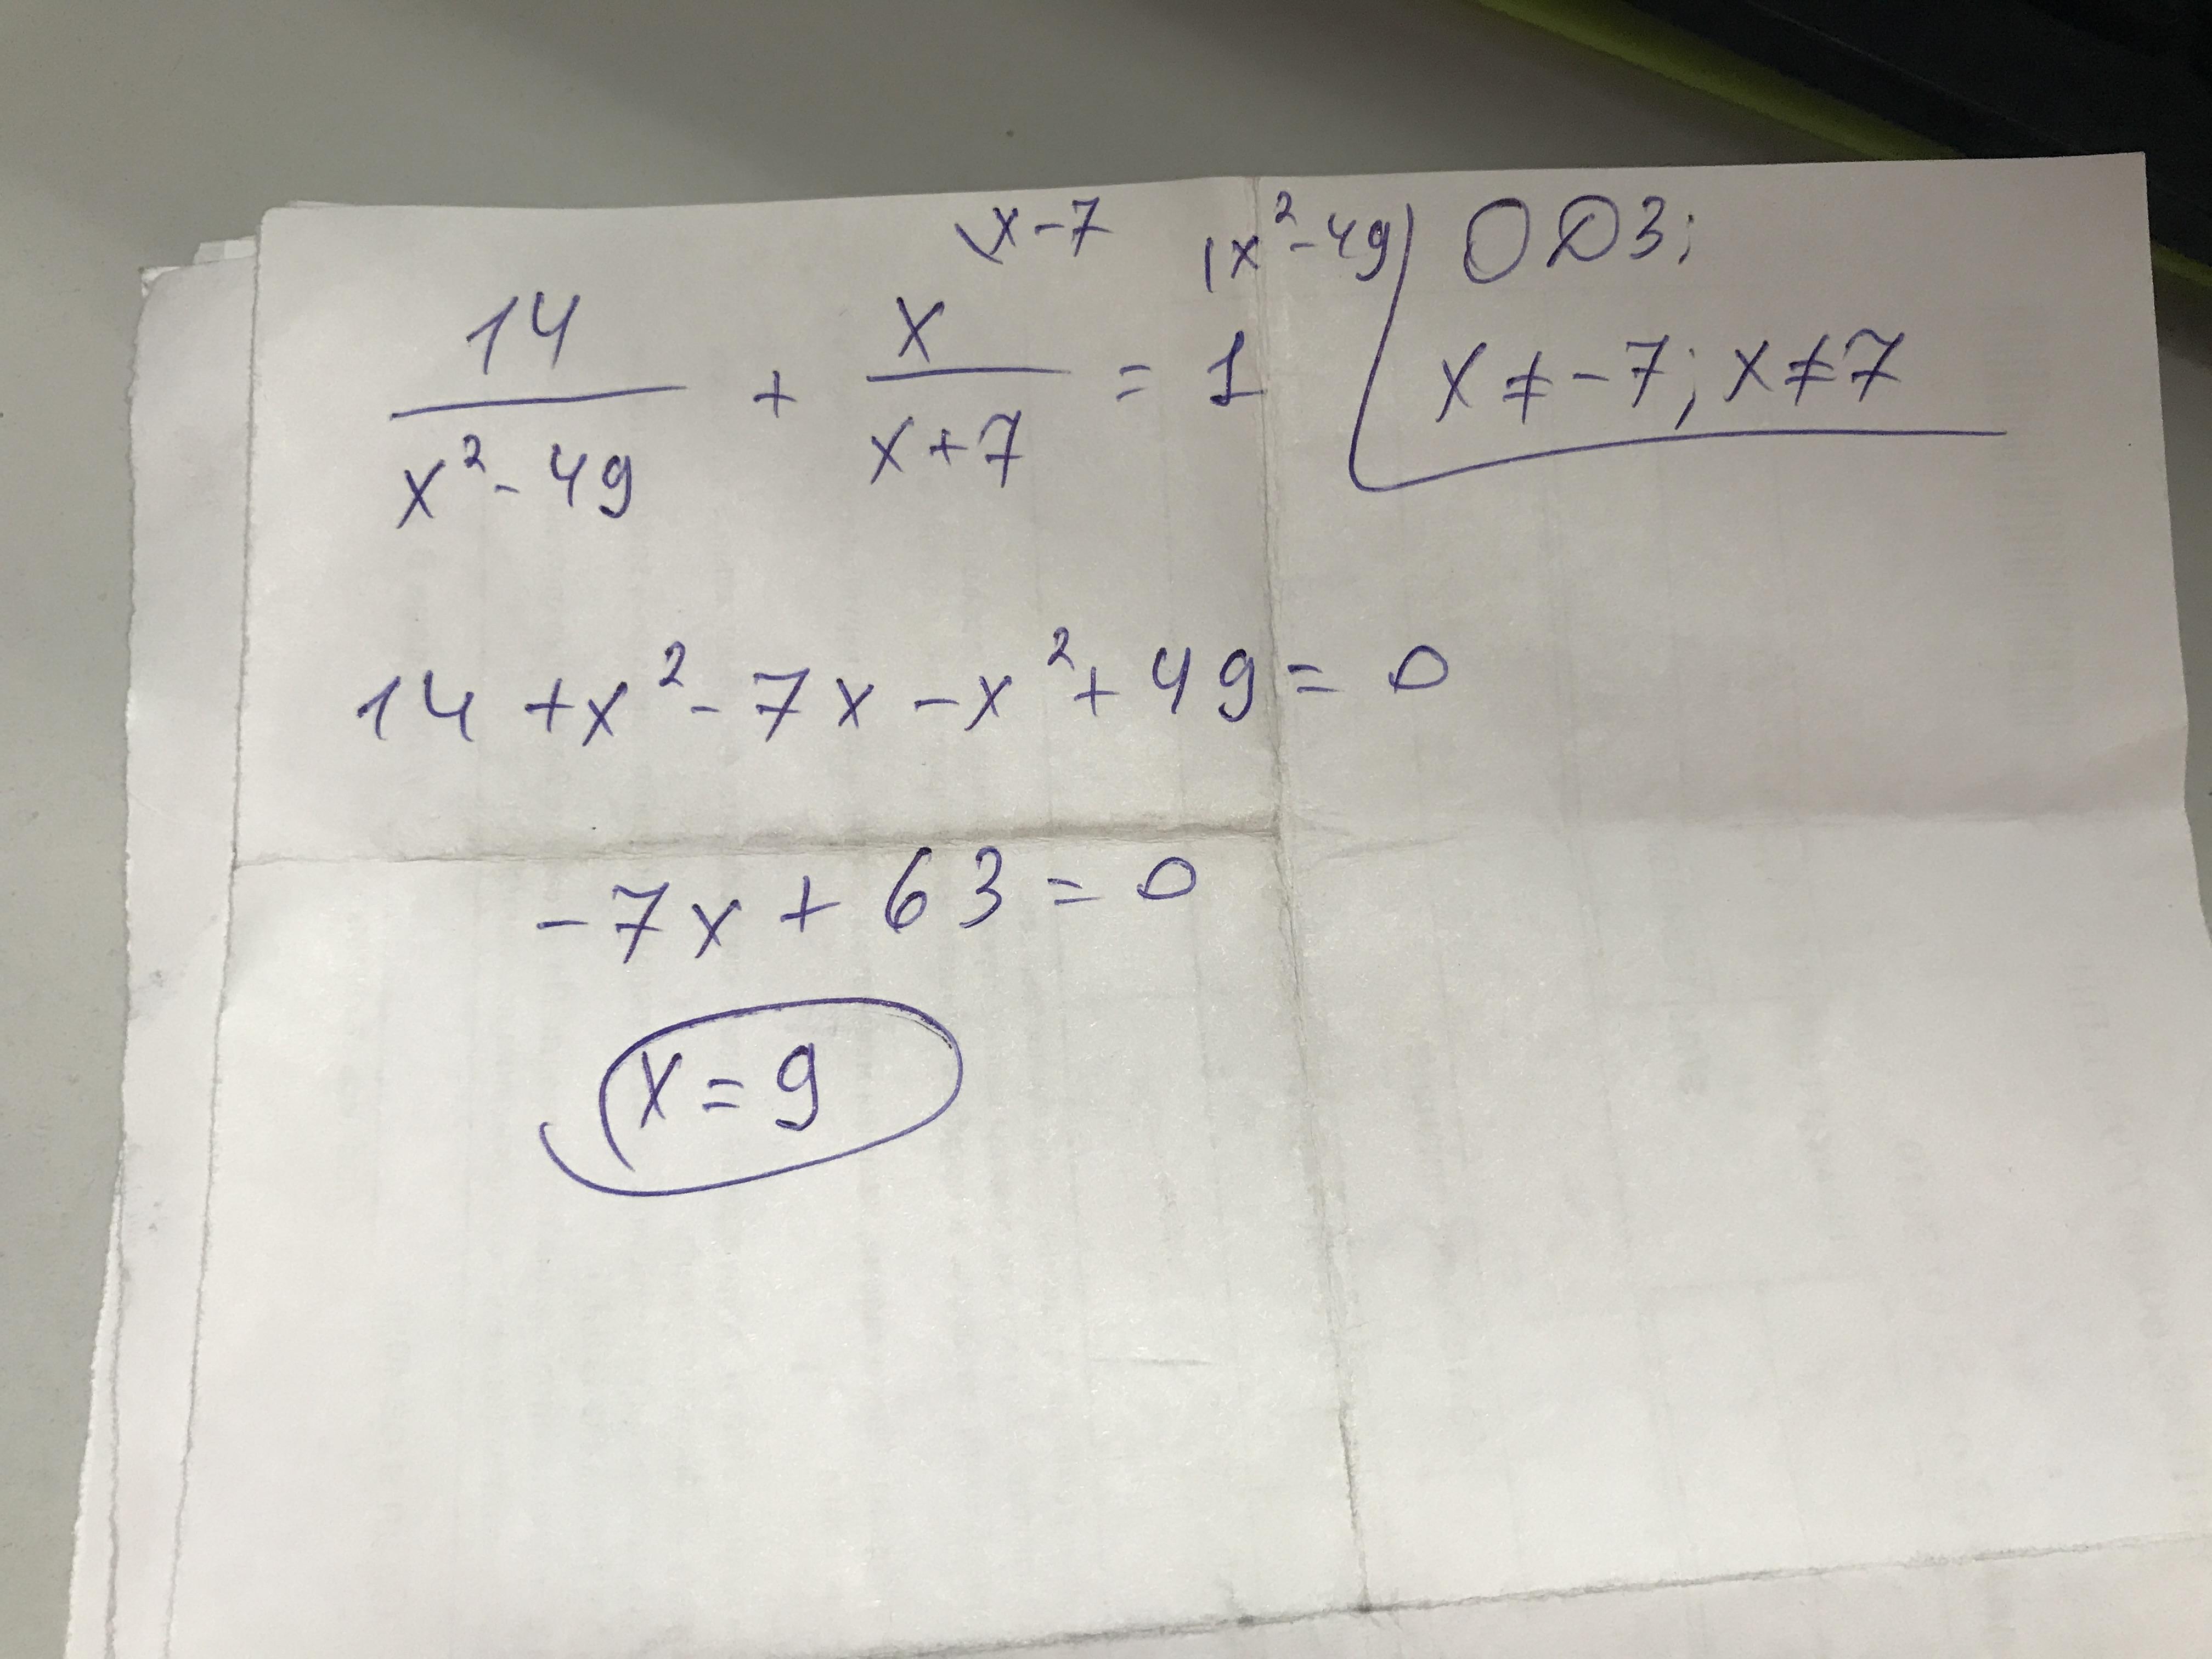 14/(x²-49) + x/(x+7) \x-7 = 1 |x²-49
ОДЗ;
x ≠ -7; x ≠ 7
14 + x² - 7x - x² + 49 = 0
-7x + 63 = 0
x = 9